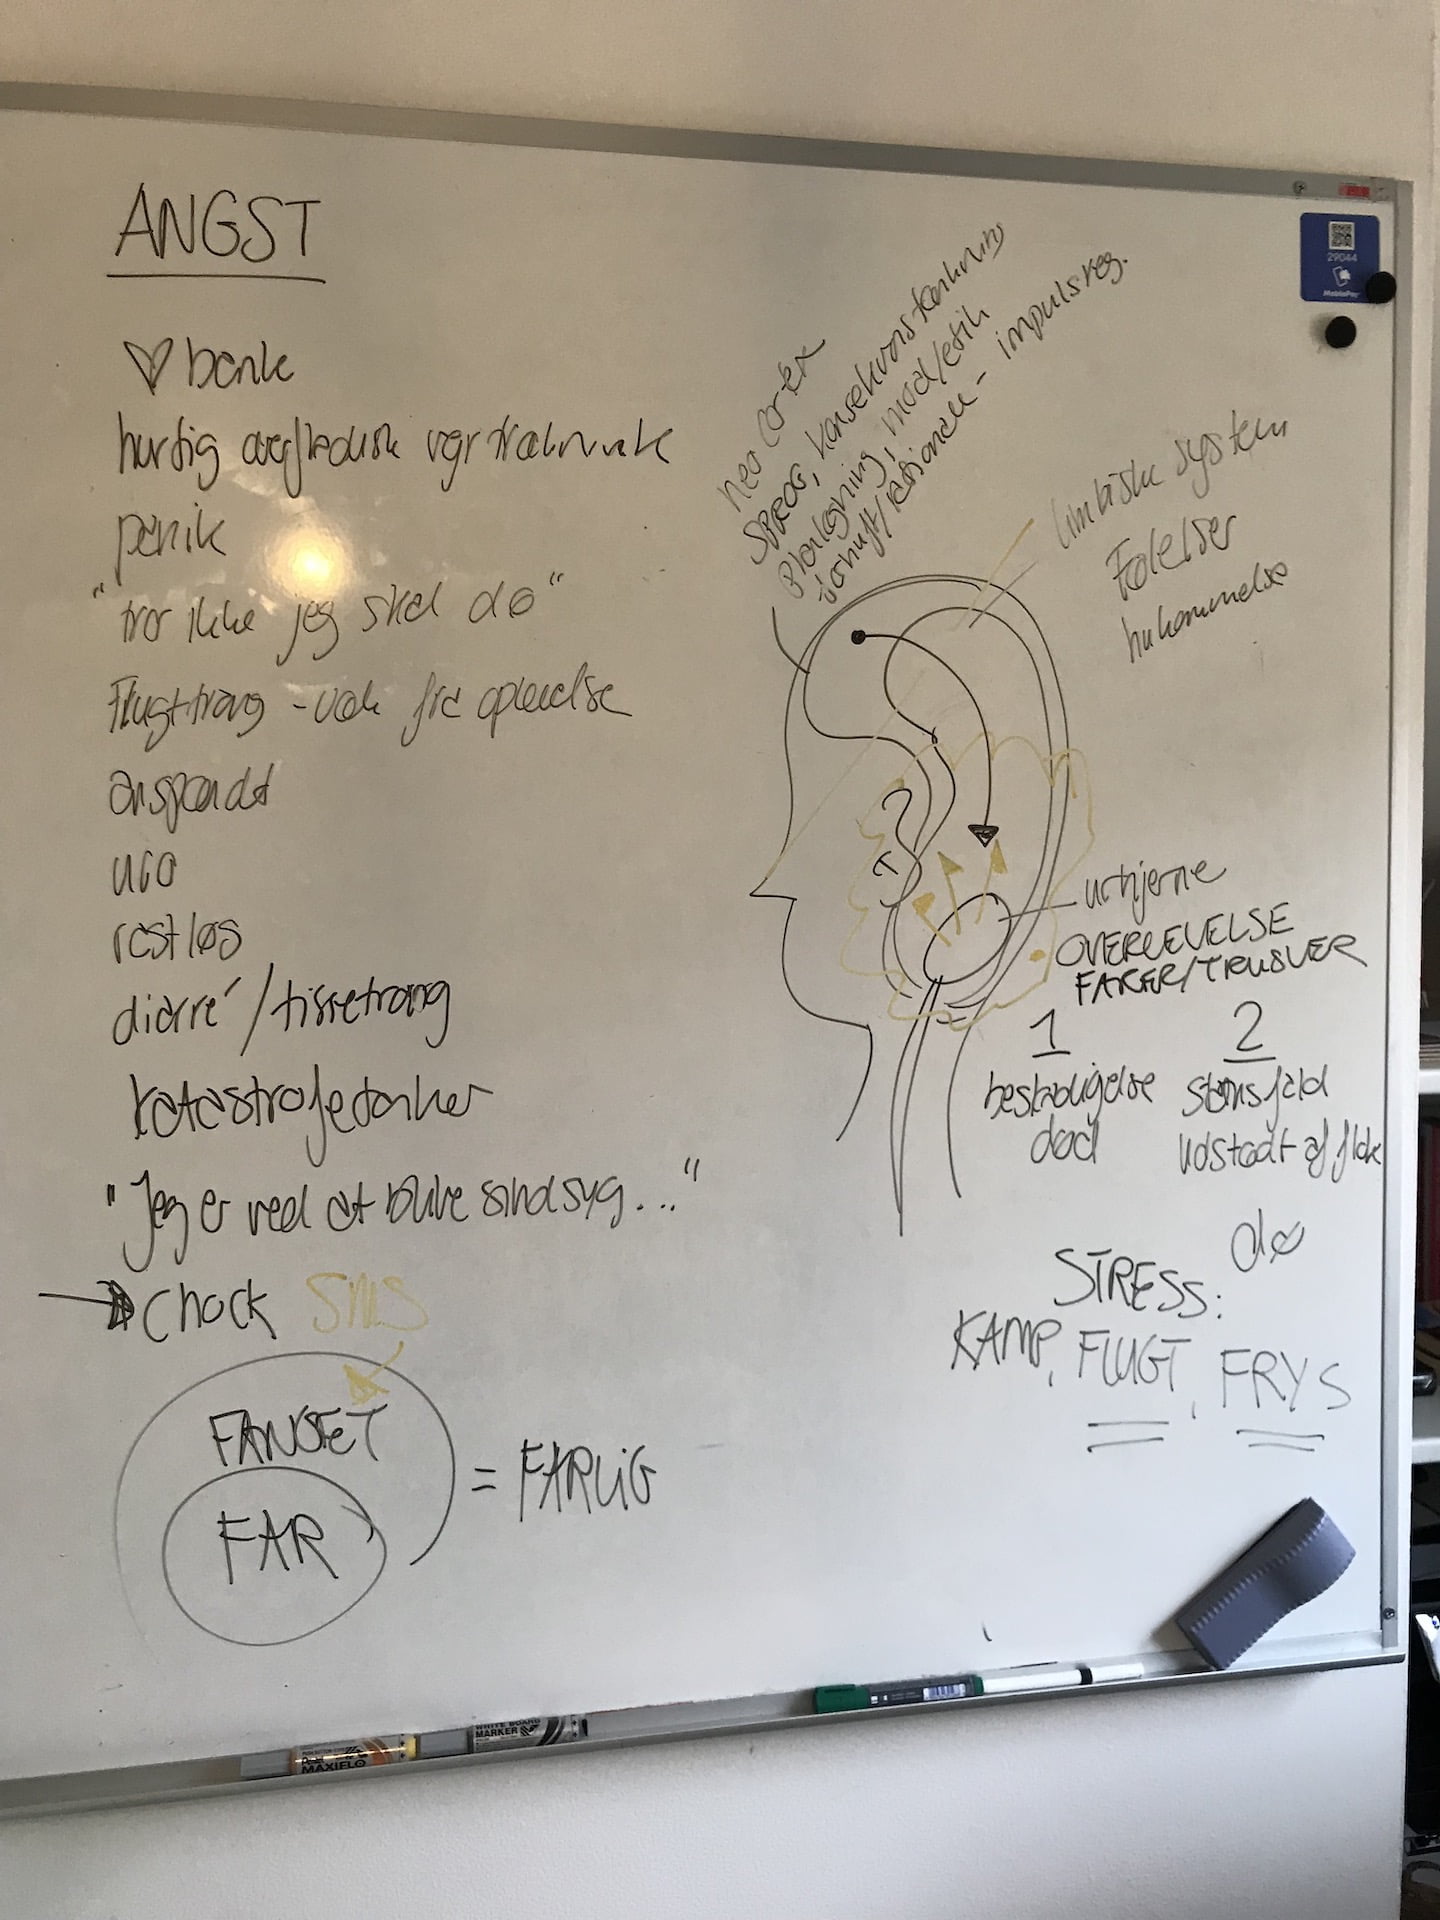 ANGST
♡ banke
hurtig overfladisk vejrtrækning
panik
"tror ikke jeg skal dø"
Flugttrang - væk fra oplevelse
anspændt
uro
rastløs
diarré / tissetrang
katastrofetanker
"Jeg er ved at blive sindsyg..."
Chock SMS
FANGET
FAR
= FARLIG
neo cortex
SPROG, konsekvenstænkning
Planlægning, moral/etik
fornuft/rationale - impulsreg.
limbiske system
Følelser
hukommelse
urhjerne
OVERLEVELSE
FARER/TRUSLER
1
beskadigelse
død
2
stamsfæld
udstødt af flok
dø
STRESS:
KAMP, FLUGT, FRYS
29044
MobilePay
MAXIFLO
WHITE BOARD
MARKER